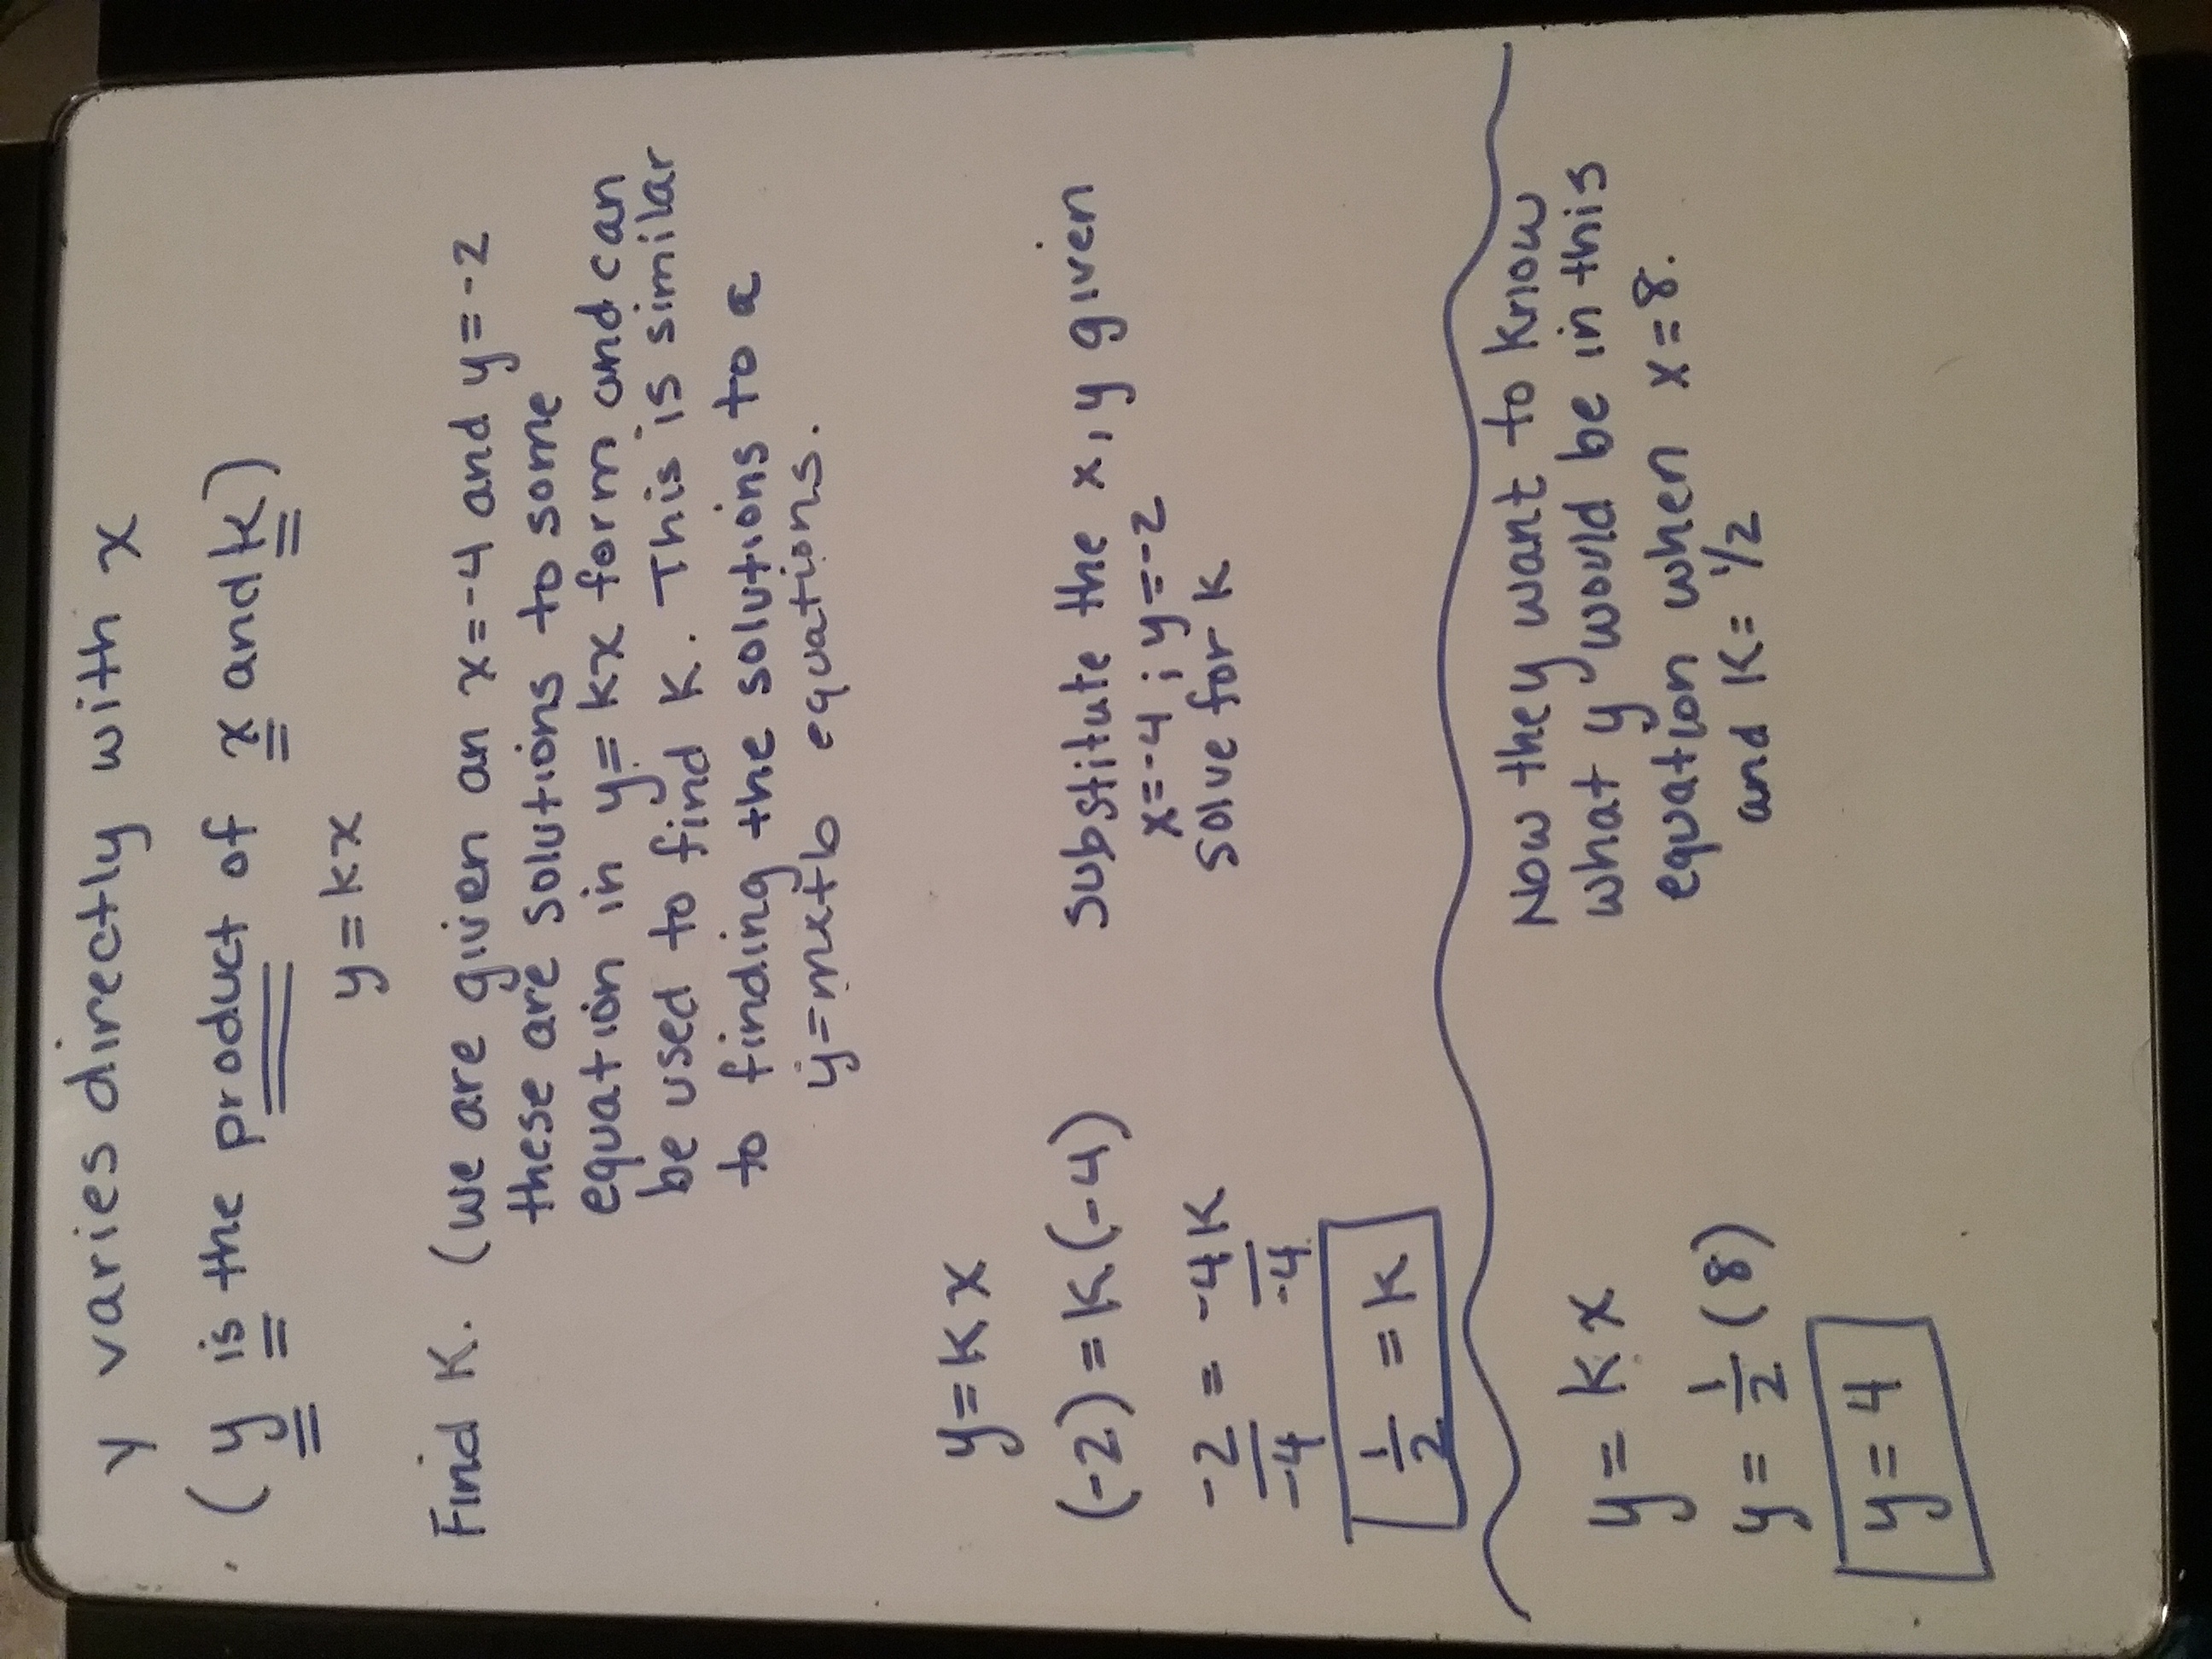 y varies directly with x
(y is the product of x and k)
y = kx
Find K. (we are given an x=-4 and y=-2
these are solutions to some
equation in y=kx form and can
be used to find K. This is similar
to finding the solutions to a
y=mx+b equations.
y = Kx
(-2) = K(-4) substitute the x, y given
x=-4; y=-2
-2/-4 = -4K/-4 solve for K
1/2 = K
Now they want to know
what y would be in this
equation when x=8.
and K= 1/2
y = Kx
y = 1/2 (8)
y = 4